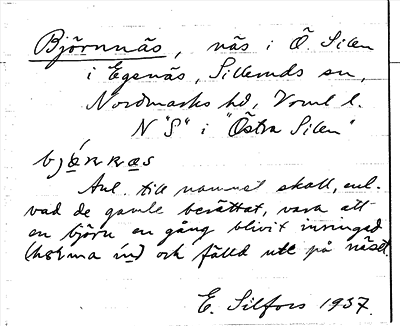 Björnnäs, näs i Ö. Silen
i Egenäs, Silleruds sn,
Nordmarks hd, Vrml l.
N "S" i "Östra Silen"
Anl. till namnet skall, enl.
vad de gamle berättat, vara att
en björn en gång blivit inringad
och fälld ute på näset.
E. Silfors 1937.